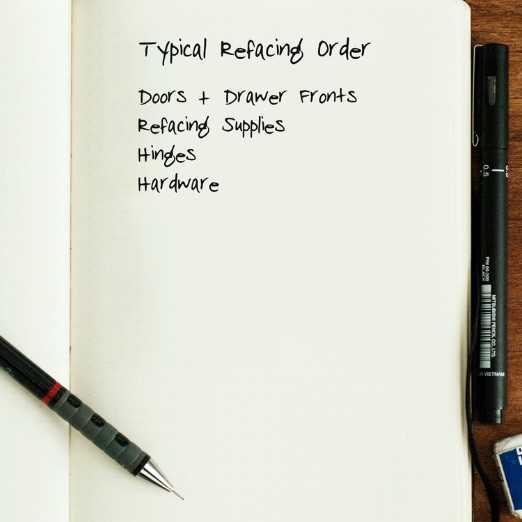 Typical Refacing Order
Doors + Drawer Fronts
Refacing Supplies
Hinges
Hardware
0.5
MITSUBISHI PENCIL CO., LTD.
VIETNAM